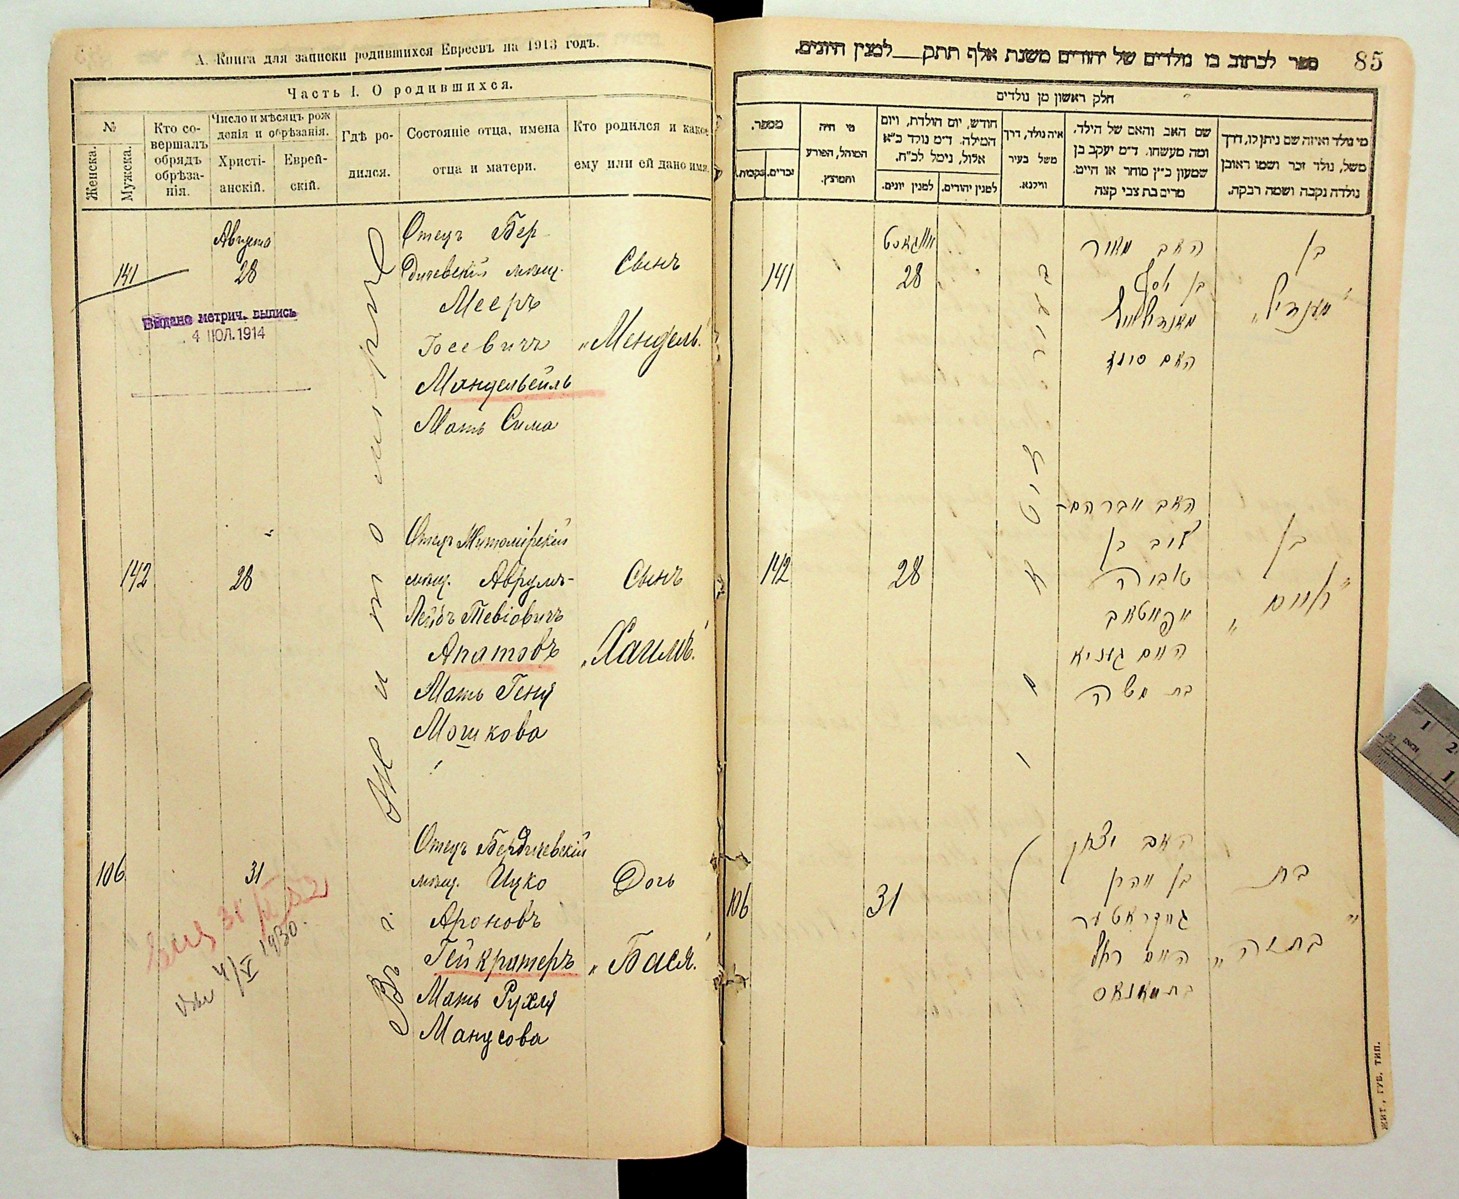 А. Книга для записки родившихся Евреевъ на 1913 годъ.
Часть I. О родившихся.
№
Женска.
Мужска.
Кто со-
вершалъ
обрядъ
обрѣза-
нія.
Число и мѣсяцъ рож
денія и обрѣзанія.
Христі-
анскій.
Еврей-
скій.
Гдѣ ро-
дился.
Состояніе отца, имена
отца и матери.
Кто родился и какое
ему или ей дано имя.
Въ г. Житомирѣ
141
Августа
28
Выдано метрич. выпись
4 ІЮЛ. 1914
Отецъ Бер-
дичевскій мѣщ.
Мееръ
Іосевичъ
Мандельвейль
Мать Сима
Сынъ
„Мендель“
142
28
Отецъ Житомірскій
мѣщ. Аврумъ-
Лейбъ Тевіовичъ
Апатовъ
Мать Геня
Мошкова
Сынъ
„Хаимъ“
106
31
4/V 1930.
Отецъ Бердичевскій
мѣщ. Ицко
Ароновъ
Гейкратеръ
Мать Рухля
Манусова
Дочь
„Бася“
85
ספר לכתוב בו נולדים של יהודים משנת אלף תתק למנין היונים.
חלק ראשון מן נולדים
מספר.
נקבות.
זכרים.
מי היה
המוהל, הפורע
והמוצץ.
חודש, יום הולדת, ויום
המילה. ד״מ נולד כ״א
אלול, נימל לכ״ח.
למנין יונים.
למנין יהודים.
איה נולד, דרך
משל בעיר
ווילנא.
שם האב והאם של הילד,
ומה מעשהו. ד״מ יעקב בן
שמעון כ״ץ סוחר או היט.
מרים בת צבי קצה
מי נולד ואיזה שם ניתן לו, דרך
משל, נולד זכר ושמו ראובן
נולדה נקבה ושמה רבקה.
בעיר זיטאמיר
141
אווגוסט
28
האב מאיר
בן יוסף
מאנדילווייל
האם סימא
בן
„מענדיל“
142
28
האב אברהם-
לייב בן
טובי׳ה
אפאטאוו
האם געניא
בת משה
בן
„חיים“
106
31
האב יצחק
בן אהרן
האם רחל
בת מאנוס
בת
„בתיה“
ЖИТ., ГУБ. ТИП.